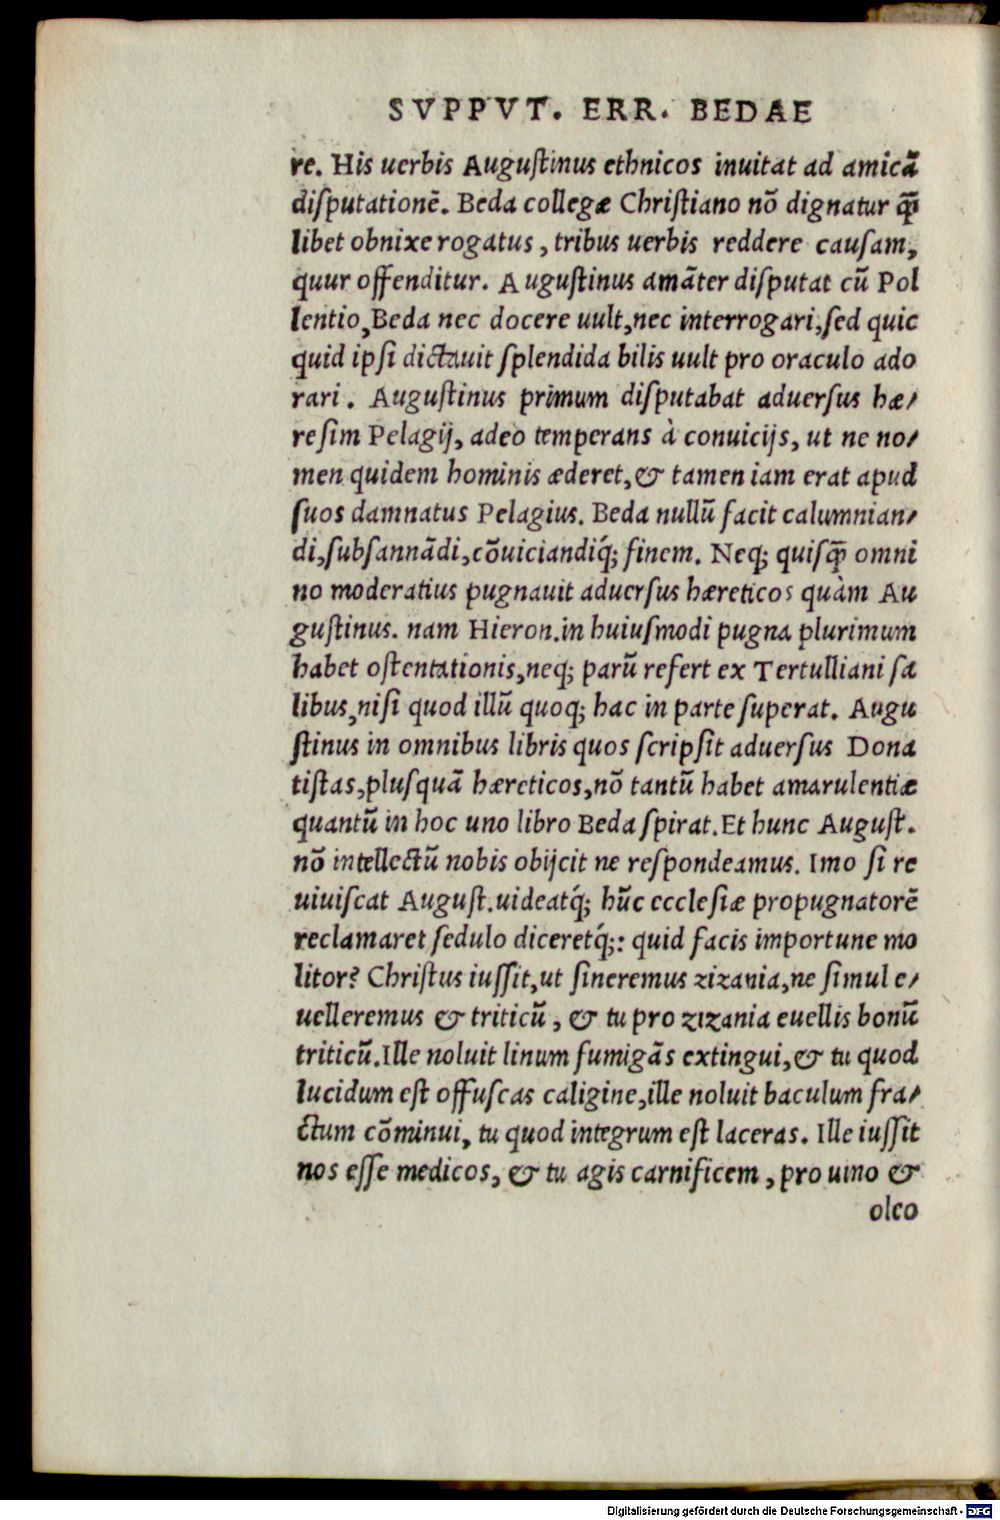 SVPPVT. ERR. BEDAE
re. His uerbis Augustinus ethnicos inuitat ad amicā
disputationē. Beda collegæ Christiano nō dignatur q̄
libet obnixe rogatus, tribus uerbis reddere causam,
quur offenditur. Augustinus amāter disputat cū Pol
lentio, Beda nec docere uult, nec interrogari, sed quic
quid ipsi dictauit splendida bilis uult pro oraculo ado
rari. Augustinus primum disputabat aduersus hæ/
resim Pelagij, adeo temperans à conuicijs, ut ne no/
men quidem hominis æderet, & tamen iam erat apud
suos damnatus Pelagius. Beda nullū facit calumnian/
di, subsannādi, cōuiciandiq́; finem. Neq; quisq̄ omni
no moderatius pugnauit aduersus hæreticos quàm Au
gustinus. nam Hieron. in huiusmodi pugna plurimum
habet ostentationis, neq; parū refert ex Tertulliani sa
libus, nisi quod illū quoq; hac in parte superat. Augu
stinus in omnibus libris quos scripsit aduersus Dona
tistas, plusquā hæreticos, nō tantū habet amarulentiæ
quantū in hoc uno libro Beda spirat. Et hunc August.
nō intellectū nobis obijcit ne respondeamus. Imo si re
uiuiscat August. uideatq́; hūc ecclesiæ propugnatorē
reclamaret sedulo diceretq́;: quid facis importune mo
litor? Christus iussit, ut sineremus zizania, ne simul e/
uelleremus & triticū, & tu pro zizania euellis bonū
triticū. Ille noluit linum fumigās extingui, & tu quod
lucidum est offuscas caligine, ille noluit baculum fra/
ctum cōminui, tu quod integrum est laceras. Ille iussit
nos esse medicos, & tu agis carnificem, pro uino &
oleo
Digitalisierung gefördert durch die Deutsche Forschungsgemeinschaft - DFG